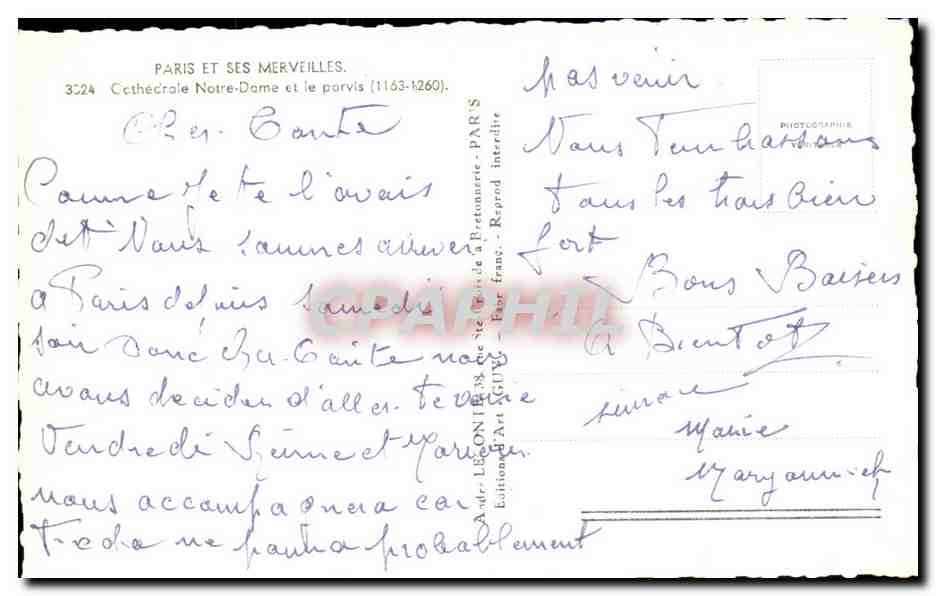 PARIS ET SES MERVEILLES.
3524 Cathédrale Notre-Dame et le parvis (1163-1260).
Cher Tante
Comme Je te l'avais
det Nous sommes arriver
a Paris depuis samedi
soir Donc Cher Tante nous
avons decider d'aller te voire
Vendredi et
nous accompagnera car
ne poura probablement
pas venir.
Nous T'embrassons
tous les trois bien
fort
Bons Baisers
A Bientot
Marie
André LECONTE, 38, rue Ste-Croix de la Bretonnerie - PARIS
Editions d'Art "GUY" - Fabr franç. - Reprod interdite
PHOTOGRAPHIE
VÉRITABLE
CPAPHIL